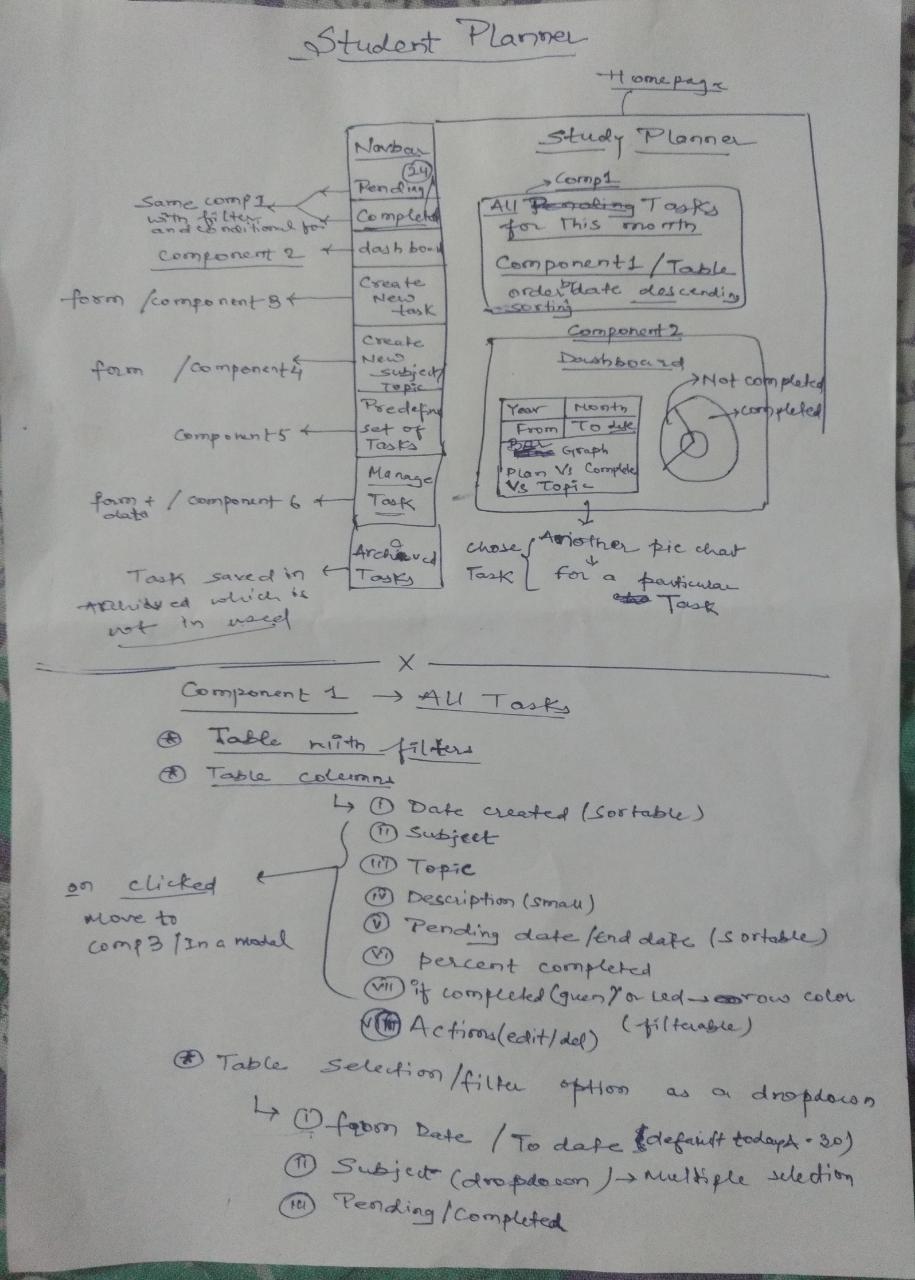 Student Planner
Homepage
Navbar
24
Pending
Completed
dashboard
Create
New
task
Create
New
subject/
Topic
Predefin
set of
Tasks
Manage
Task
Archived
Tasks
Same comp1
with filter
and conditional
Component 2
form /component 3
form /component4
Component5
form + / component 6
data
Task saved in
Archived which is
not in used
Study Planner
Comp1
All Pending Tasks
for This month
Component1 / Table
order by date descending
sorting
Component2
Dashboard
Year Month
From To date
Bar Graph
Plan Vs Complete
Vs Topic
Not completed
completed
chose
Task
Another pie chat
for a particular
Task
X
Component 1 → All Tasks
* Table with filters
* Table columns
↳ (i) Date created (Sortable)
(ii) Subject
(iii) Topic
(iv) Description (small)
(v) Pending date /End date (Sortable)
(vi) percent completed
(vii) if completed (green) or red → row color
(filterable)
(viii) Actions (edit/del)
on clicked
move to
comp3 / In a modal
* Table selection /filter option as a dropdown
↳ (i) from Date / To date (default today - 30)
(ii) Subject (dropdown) → Multiple selection
(iii) Pending /Completed